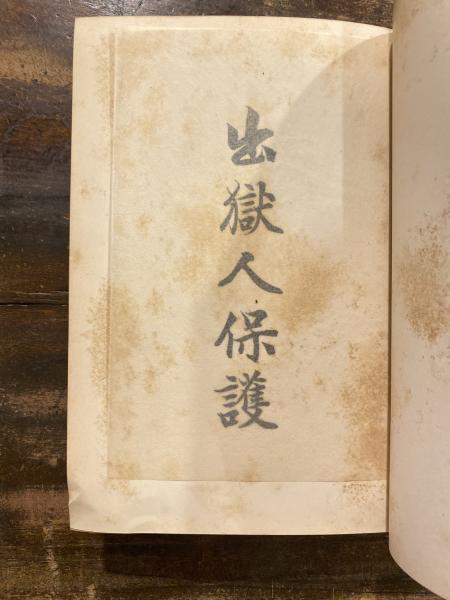 出獄人保護